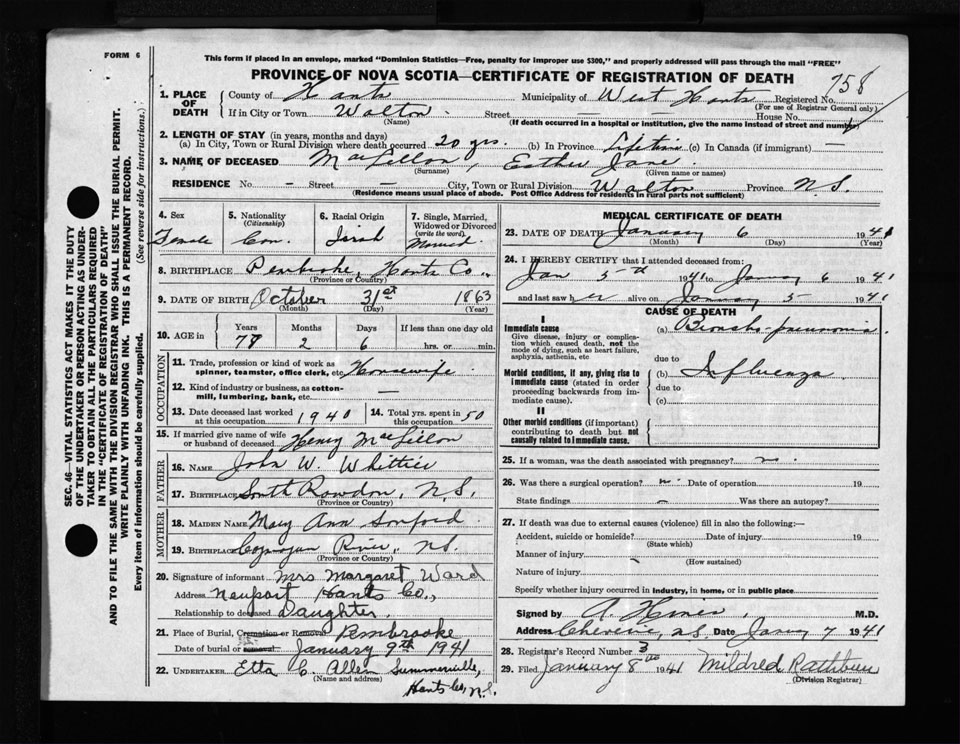 FORM 6
This form if placed in an envelope, marked "Dominion Statistics—Free, penalty for improper use $300," and properly addressed will pass through the mail "FREE"
PROVINCE OF NOVA SCOTIA—CERTIFICATE OF REGISTRATION OF DEATH
758
1. PLACE OF DEATH
County of Hants Municipality of West Hants Registered No.
(For use of Registrar General only)
If in City or Town Walton Street — House No. —
(Name) (If death occurred in a hospital or institution, give the name instead of street and number)
2. LENGTH OF STAY (in years, months and days)
(a) In City, Town or Rural Division where death occurred 20 yrs. (b) In Province Lifetime (c) In Canada (if immigrant) —
3. NAME OF DECEASED MacLellan, Esther Jane
(Surname) (Given name or names)
RESIDENCE No. — Street — City, Town or Rural Division Walton Province N.S.
(Residence means usual place of abode. Post Office Address for residents in rural parts not sufficient)
4. Sex
Female
5. Nationality (Citizenship)
Can.
6. Racial Origin
Irish
7. Single, Married, Widowed or Divorced (write the word)
Married
8. BIRTHPLACE Pembroke, Hants Co.,
(Province or Country)
9. DATE OF BIRTH October 31st 1863
(Month) (Day) (Year)
10. AGE in
Years Months Days If less than one day old
77 2 6 hrs. or min.
OCCUPATION
11. Trade, profession or kind of work as spinner, teamster, office clerk, etc. Housewife
12. Kind of industry or business, as cotton-mill, lumbering, bank, etc. —
13. Date deceased last worked at this occupation 1940
14. Total yrs. spent in this occupation 50
15. If married give name of wife or husband of deceased Henry MacLellan
FATHER
16. NAME John W. Whittier
17. BIRTHPLACE South Rawdon, N.S.
(Province or Country)
MOTHER
18. MAIDEN NAME Mary Ann Sanford
19. BIRTHPLACE River, N.S.
(Province or Country)
20. Signature of informant Mrs Margaret Ward
Address Newport Hants Co.,
Relationship to deceased Daughter
21. Place of Burial, Cremation or Removal Pembrooke
Date of burial or removal January 9th 1941
22. UNDERTAKER Etta C. Allen Summerville,
(Name and address)
Hants Co, N.S.
MEDICAL CERTIFICATE OF DEATH
23. DATE OF DEATH January 6 1941
(Month) (Day) (Year)
24. I HEREBY CERTIFY that I attended deceased from:
Jan 5th 1941 to January 6 1941
and last saw her alive on January 5 1941
CAUSE OF DEATH
I
Immediate cause
Give disease, injury or complication which caused death, not the mode of dying, such as heart failure, asphyxia, asthenia, etc
(a) Broncho-pneumonia
due to
Morbid conditions, if any, giving rise to immediate cause (stated in order proceeding backwards from immediate cause).
(b) Influenza
due to
(c)
II
Other morbid conditions (if important) contributing to death but not causally related to immediate cause.
25. If a woman, was the death associated with pregnancy? no.
26. Was there a surgical operation? no Date of operation 19
State findings — Was there an autopsy?
27. If death was due to external causes (violence) fill in also the following:—
Accident, suicide or homicide? Date of injury 19
(State which)
Manner of injury
(How sustained)
Nature of injury
Specify whether injury occurred in industry, in home, or in public place
Signed by M.D.
Address Cheverie, N.S. Date Jany 7 1941
28. Registrar's Record Number 3
29. Filed January 8th 1941 Mildred Rathbun
(Division Registrar)
SEC. 46—VITAL STATISTICS ACT MAKES IT THE DUTY
OF THE UNDERTAKER OR PERSON ACTING AS UNDER-
TAKER TO OBTAIN ALL THE PARTICULARS REQUIRED
IN THE "CERTIFICATE OF REGISTRATION OF DEATH"
AND TO FILE THE SAME WITH THE DIVISION REGISTRAR WHO SHALL ISSUE THE BURIAL PERMIT.
WRITE PLAINLY WITH UNFADING INK. THIS IS A PERMANENT RECORD.
Every item of information should be carefully supplied. (See reverse side for instructions.)